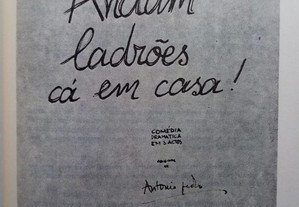 Andam
ladrões
cá em casa!
COMÉDIA
DRAMATICA
EM 3 ACTOS
de
António Pedro